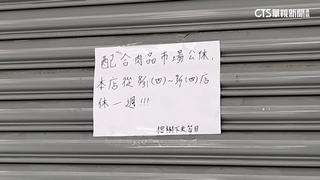 CTS華視新聞
配合肉品市場公休,
本店從8/1(四)~8/1(四)店
休一週!!!